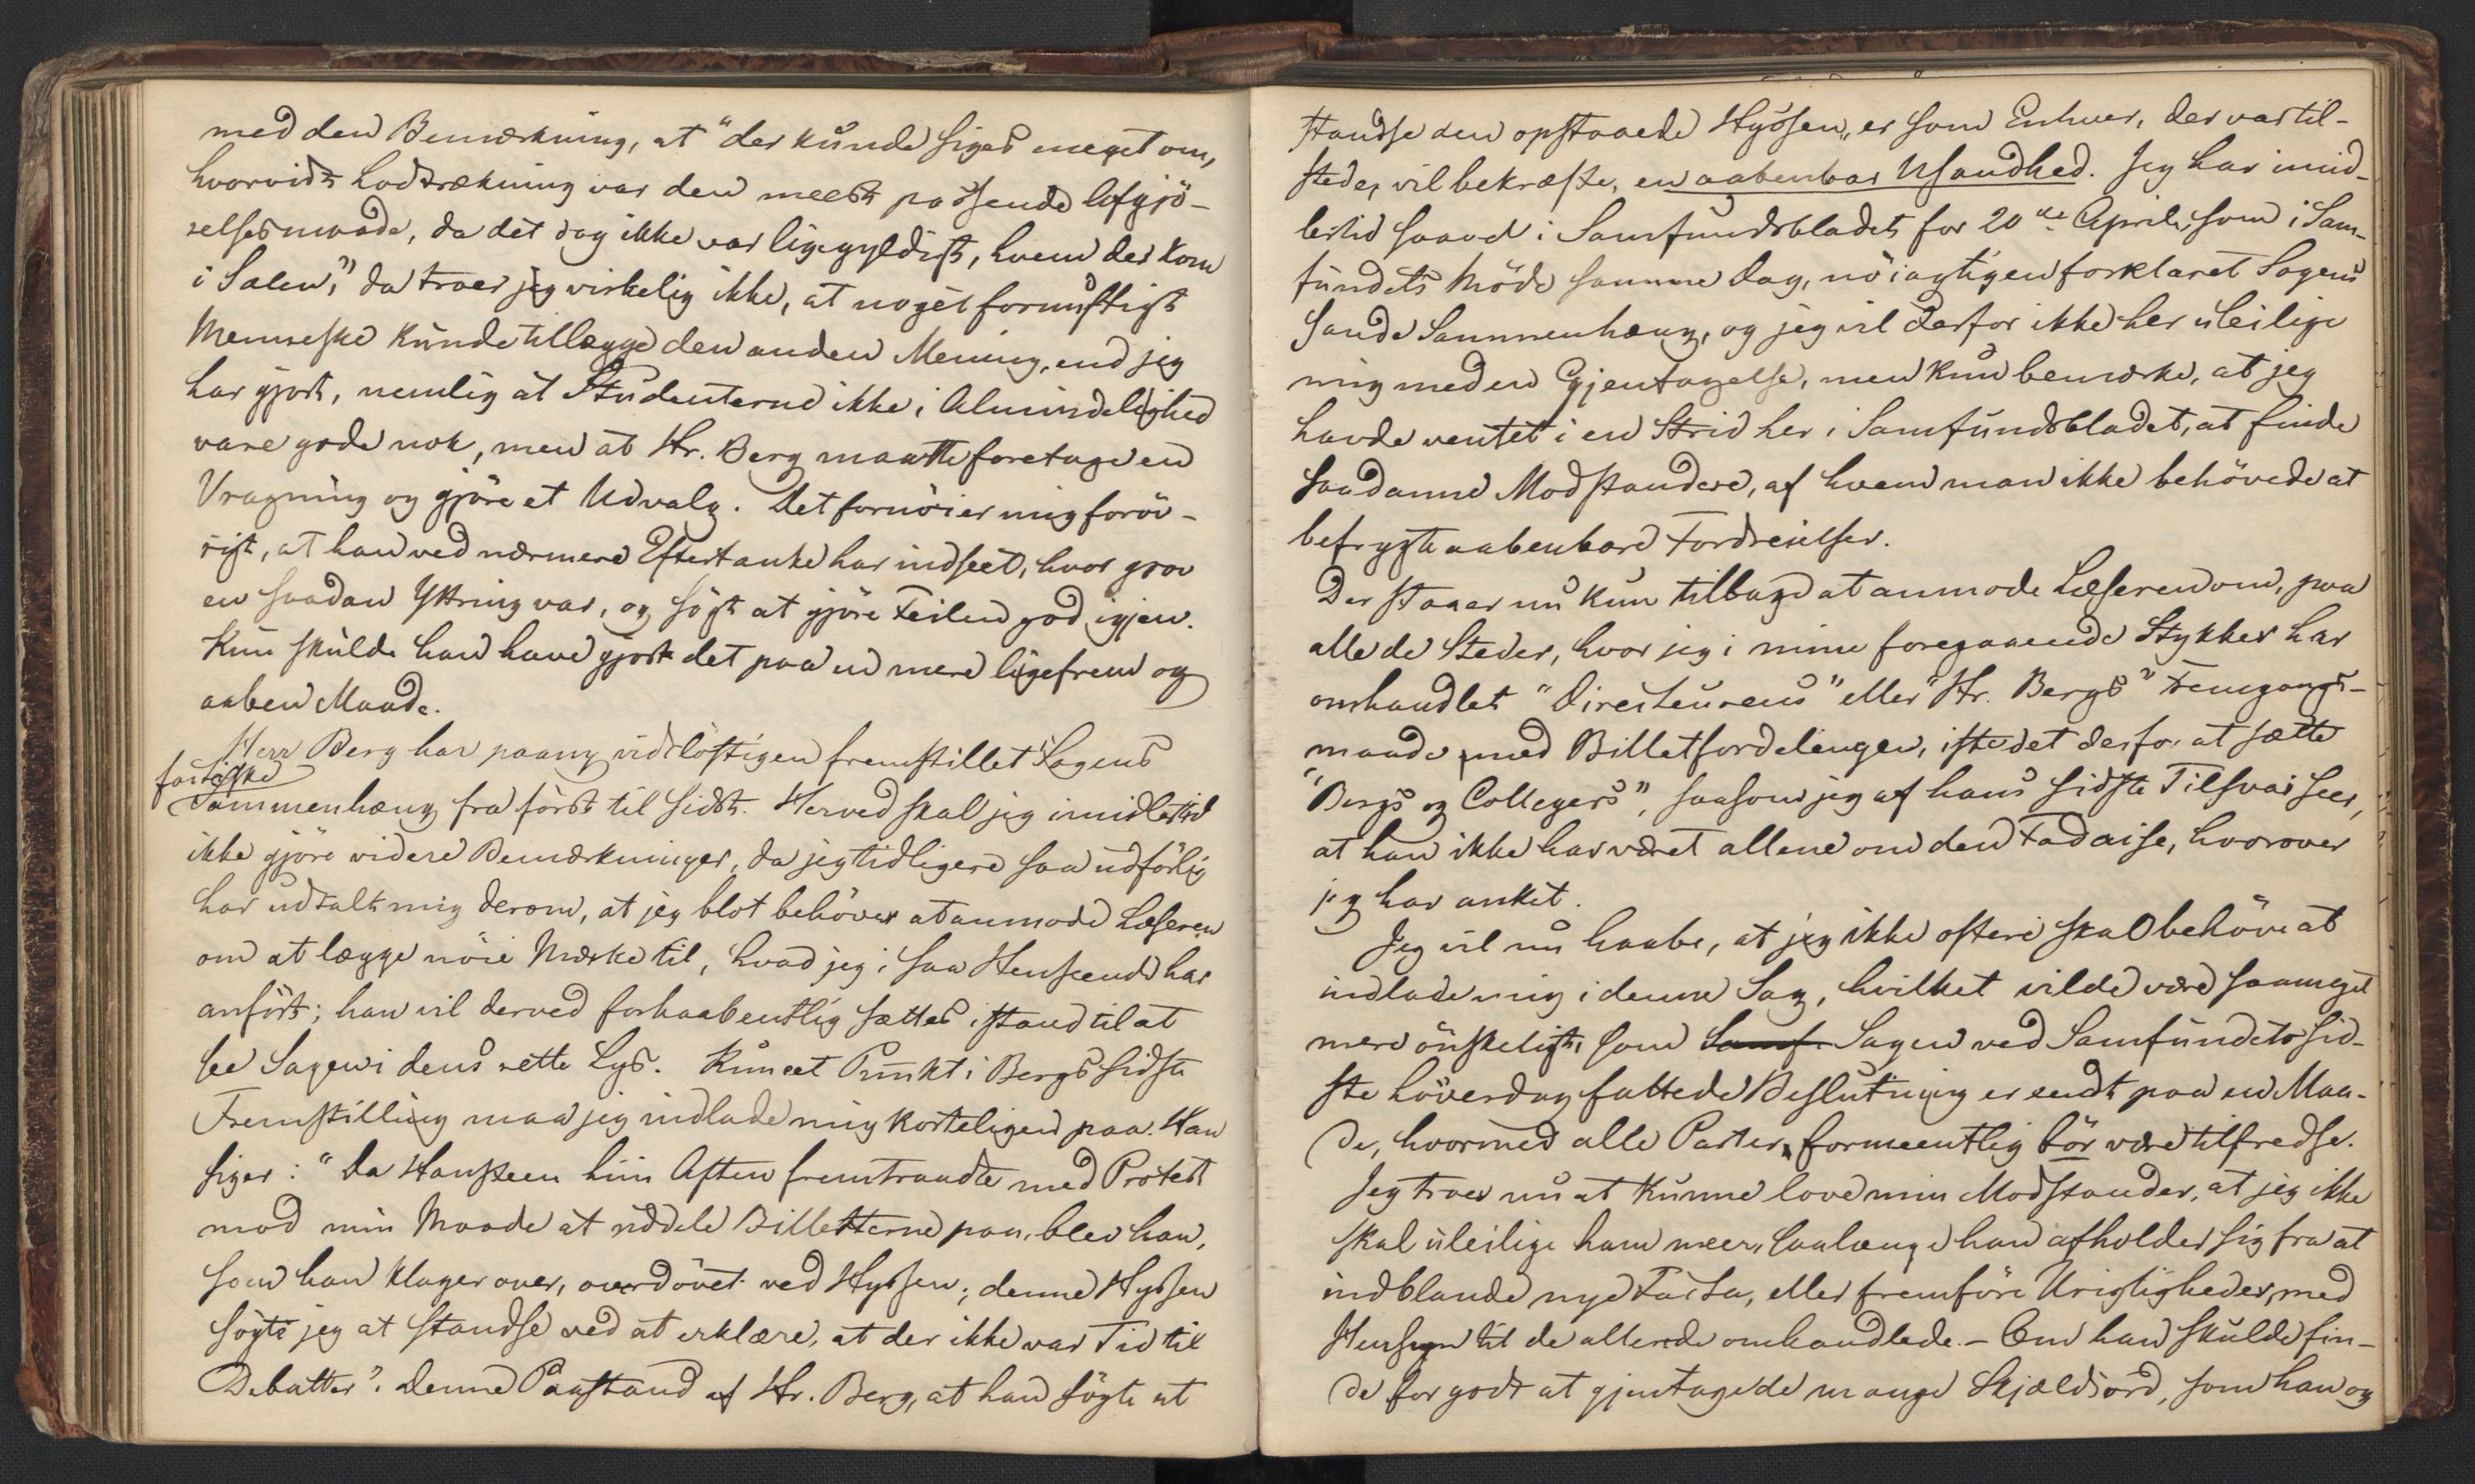 med den Bemærkning, at "der kunde siges meget om,
hvorvidt Lodtrækning var den meest passende Afgjö-
relsesmaade, da det dog ikke var ligegyldigt, hvem der kom
i Salen," da troer jeg virkelig ikke, at noget fornuftigt
Menneske kunde tillægge den anden Mening, end jeg
har gjort, nemlig at Studenterne ikke i Almindelighed
vare gode nok, men at Hr. Berg maatte foretage en
Vragning og gjöre et Udvalg. Det fornöier mig foröv-
rigt, at han ved nærmere Eftertanke har indseet, hvor grov
en saadan Yttring var, og sögt at gjöre Feilen god igjen.
Kun skulde han have gjort det paa en mere ligefrem og
aaben Maade.
Herr Berg har paany vidtlöftigen fremstillet "Sagens
factiske
Sammenhæng fra först til sidst. Herved skal jeg imidlertid
ikke gjöre videre Bemærkninger, da jeg tidligere saa udförlig
har udtalt mig derom, at jeg blot behöver at anmode Læseren
om at lægge nöie Mærke til, hvad jeg i saa Henseende har
anfört; han vil derved forhaabentlig sættes istand til at
see Sagen i dens rette Lys. Kun eet Punkt i Bergs sidste
Fremstilling maa jeg indlade mig korteligen paa. Han
siger: "Da Hansteen hiin Aften fremtraadte med Protest
mod min Maade at uddele Billetterne paa, blev han,
som han klager over, overdövet ved Hyssen; denne Hyssen
sögte jeg at standse ved at erklære, at der ikke var Tid til
Debatter". Denne Paastand af Hr. Berg, at han sögte at
standse den opstaaede Hyssen, er som Enhver, der var til-
stede, vil bekræfte, en aabenbar Usandhed. Jeg har imid-
lertid saavel i Samfundsbladet for 20de April, som i Sam-
fundets Möde samme Dag, nöiagtigen forklaret Sagens
sande Sammenhæng, og jeg vil derfor ikke her uleilige
mig med en Gjentagelse, men kun bemærke, at jeg
havde ventet i en Strid her i Samfundsbladet, at finde
saadanne Modstandere, af hvem man ikke behövede at
befrygte aabenbare Fordreielser.
Der staaer nu kun tilbage at anmode Læseren om, paa
alle de Steder, hvor jeg i mine foregaaende Stykker har
omhandlet "Directeurens" eller "Hr. Bergs" Fremgangs-
maade med Billetfordelingen, istedet derfor at sætte
"Bergs og Collegers", saasom jeg af hans sidste Tilsvar seer,
at han ikke har været allene om den Fadaise, hvorover
jeg har anket.
Jeg vil nu haabe, at jeg ikke oftere skal behöve at
indlade mig i denne Sag, hvilket vilde være saameget
mere önskeligt, som Samf. Sagen ved Samfundets sid-
ste Löverdag fattede Beslutning er endt paa en Maa-
de, hvormed alle Parter formeentlig bör være tilfredse.
Jeg troer nu at kunne love min Modstander, at jeg ikke
skal uleilige ham meer, saalænge han afholder sig fra at
indblande nye Facta, eller fremföre Urigtigheder, med
Hensyn til de allerede omhandlede. - Om han skulde fin-
de for godt at gjentage de mange Skjældsord, som han og